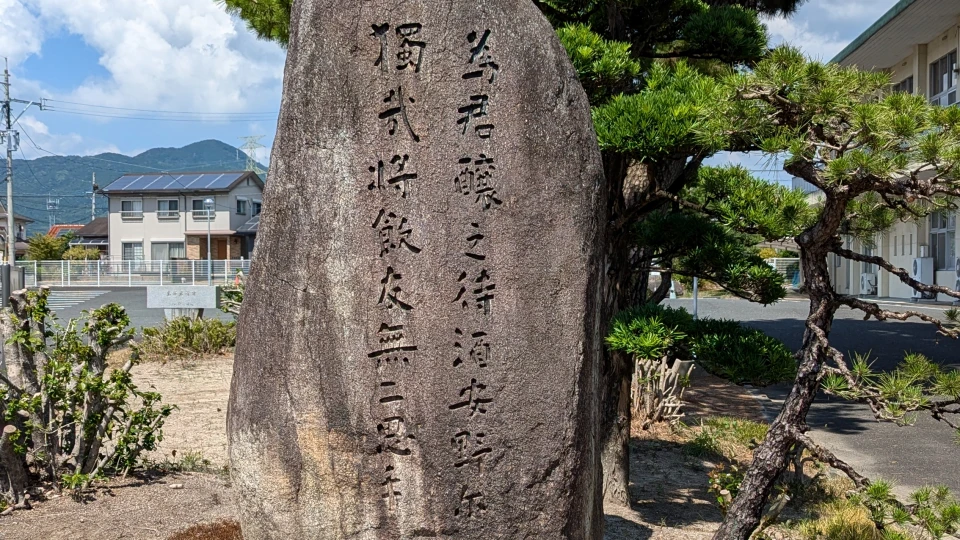 為君釀之待酒安野尓
獨哉将飲友無二思手